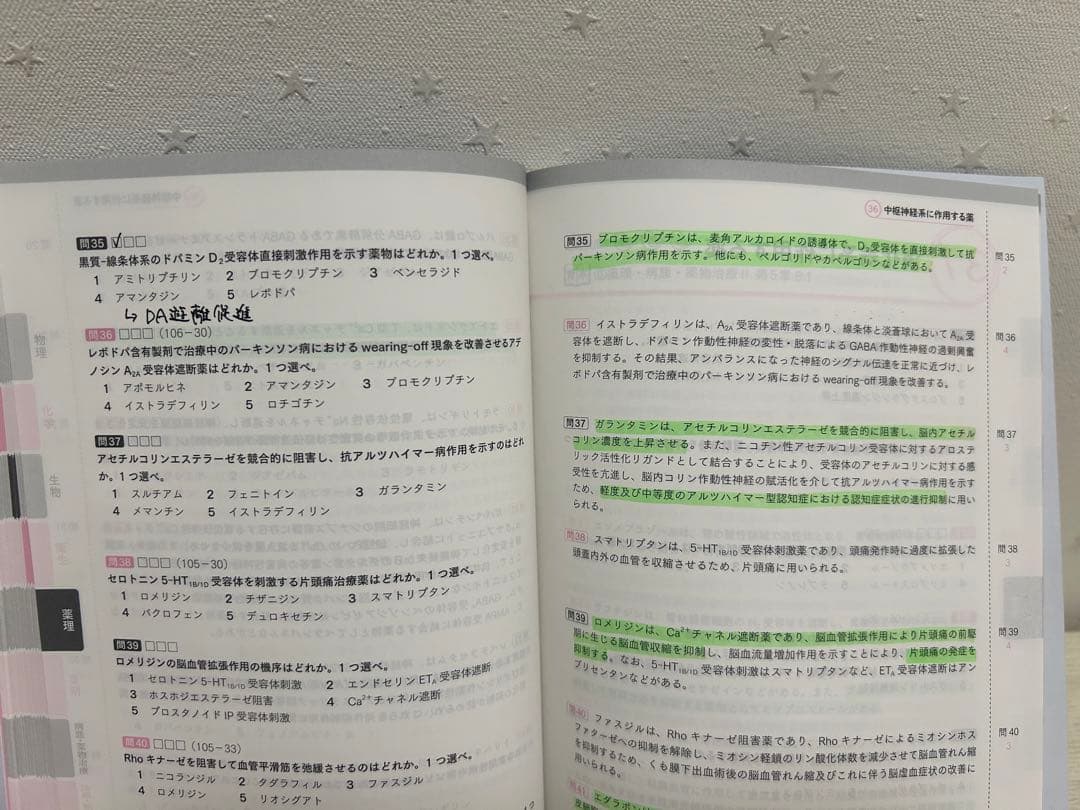 問35 □□□
黒質-線条体系のドパミンD₂受容体直接刺激作用を示す薬物はどれか。1つ選べ。
1 アミトリプチリン 2 ブロモクリプチン 3 ベンセラジド
4 アマンタジン 5 レボドパ
↳ DA遊離促進
問36 □□□(106-30)
レボドパ含有製剤で治療中のパーキンソン病におけるwearing-off現象を改善させるアデ
ノシンA₂A受容体遮断薬はどれか。1つ選べ。
1 アポモルヒネ 2 アマンタジン 3 ブロモクリプチン
4 イストラデフィリン 5 ロチゴチン
問37 □□□
アセチルコリンエステラーゼを競合的に阻害し、抗アルツハイマー病作用を示すのはどれ
か。1つ選べ。
1 スルチアム 2 フェニトイン 3 ガランタミン
4 メマンチン 5 イストラデフィリン
問38 □□□(105-30)
セロトニン5-HT1B/1D受容体を刺激する片頭痛治療薬はどれか。1つ選べ。
1 ロメリジン 2 チザニジン 3 スマトリプタン
4 バクロフェン 5 デュロキセチン
問39 □□□
ロメリジンの脳血管拡張作用の機序はどれか。1つ選べ。
1 セロトニン5-HT1B/1D受容体刺激 2 エンドセリンETA受容体遮断
3 ホスホジエステラーゼ阻害 4 Ca²⁺チャネル遮断
5 プロスタノイドIP受容体刺激
問40 □□□(105-33)
Rhoキナーゼを阻害して血管平滑筋を弛緩させるのはどれか。1つ選べ。
1 ニコランジル 2 タダラフィル 3 ファスジル
4 ロメリジン 5 リオシグアト
物理
化学
生物
衛生
薬理
病態・薬物治療
36 中枢神経系に作用する薬
問35 ブロモクリプチンは、麦角アルカロイドの誘導体で、D₂受容体を直接刺激して抗
パーキンソン病作用を示す。他にも、ペルゴリドやカベルゴリンなどがある。
問35
2
問36 イストラデフィリンは、A₂A受容体遮断薬であり、線条体と淡蒼球においてA₂A受
容体を遮断し、ドパミン作動性神経の変性・脱落によるGABA作動性神経の過剰興奮
を抑制する。その結果、アンバランスになった神経のシグナル伝達を正常に近づけ、レ
ボドパ含有製剤で治療中のパーキンソン病におけるwearing-off現象を改善する。
問36
4
問37 ガランタミンは、アセチルコリンエステラーゼを競合的に阻害し、脳内アセチル
コリン濃度を上昇させる。また、ニコチン性アセチルコリン受容体に対するアロステ
リック活性化リガンドとして結合することにより、受容体のアセチルコリンに対する感
受性を亢進し、脳内コリン作動性神経の賦活化を介して抗アルツハイマー病作用を示す
ため、軽度及び中等度のアルツハイマー型認知症における認知症症状の進行抑制に用い
られる。
問37
3
問38 スマトリプタンは、5-HT1B/1D受容体刺激薬であり、頭痛発作時に過度に拡張した
頭蓋内外の血管を収縮させるため、片頭痛に用いられる。
問38
3
問39 ロメリジンは、Ca²⁺チャネル遮断薬であり、脳血管拡張作用により片頭痛の前駆
期に生じる脳血管収縮を抑制し、脳血流量増加作用を示すことにより、片頭痛の発症を
抑制する。なお、5-HT1B/1D受容体刺激はスマトリプタンなど、ETA受容体遮断はアン
ブリセンタンなどがある。
問39
4
問40 ファスジルは、Rhoキナーゼ阻害薬であり、Rhoキナーゼによるミオシンホス
ファターゼへの抑制を解除し、ミオシン軽鎖のリン酸化体数を減少させて脳血管れん縮
を抑制するため、くも膜下出血術後の脳血管れん縮及びこれに伴う脳虚血症状の改善に
用いられる。
問40
3
問41 エダラボン